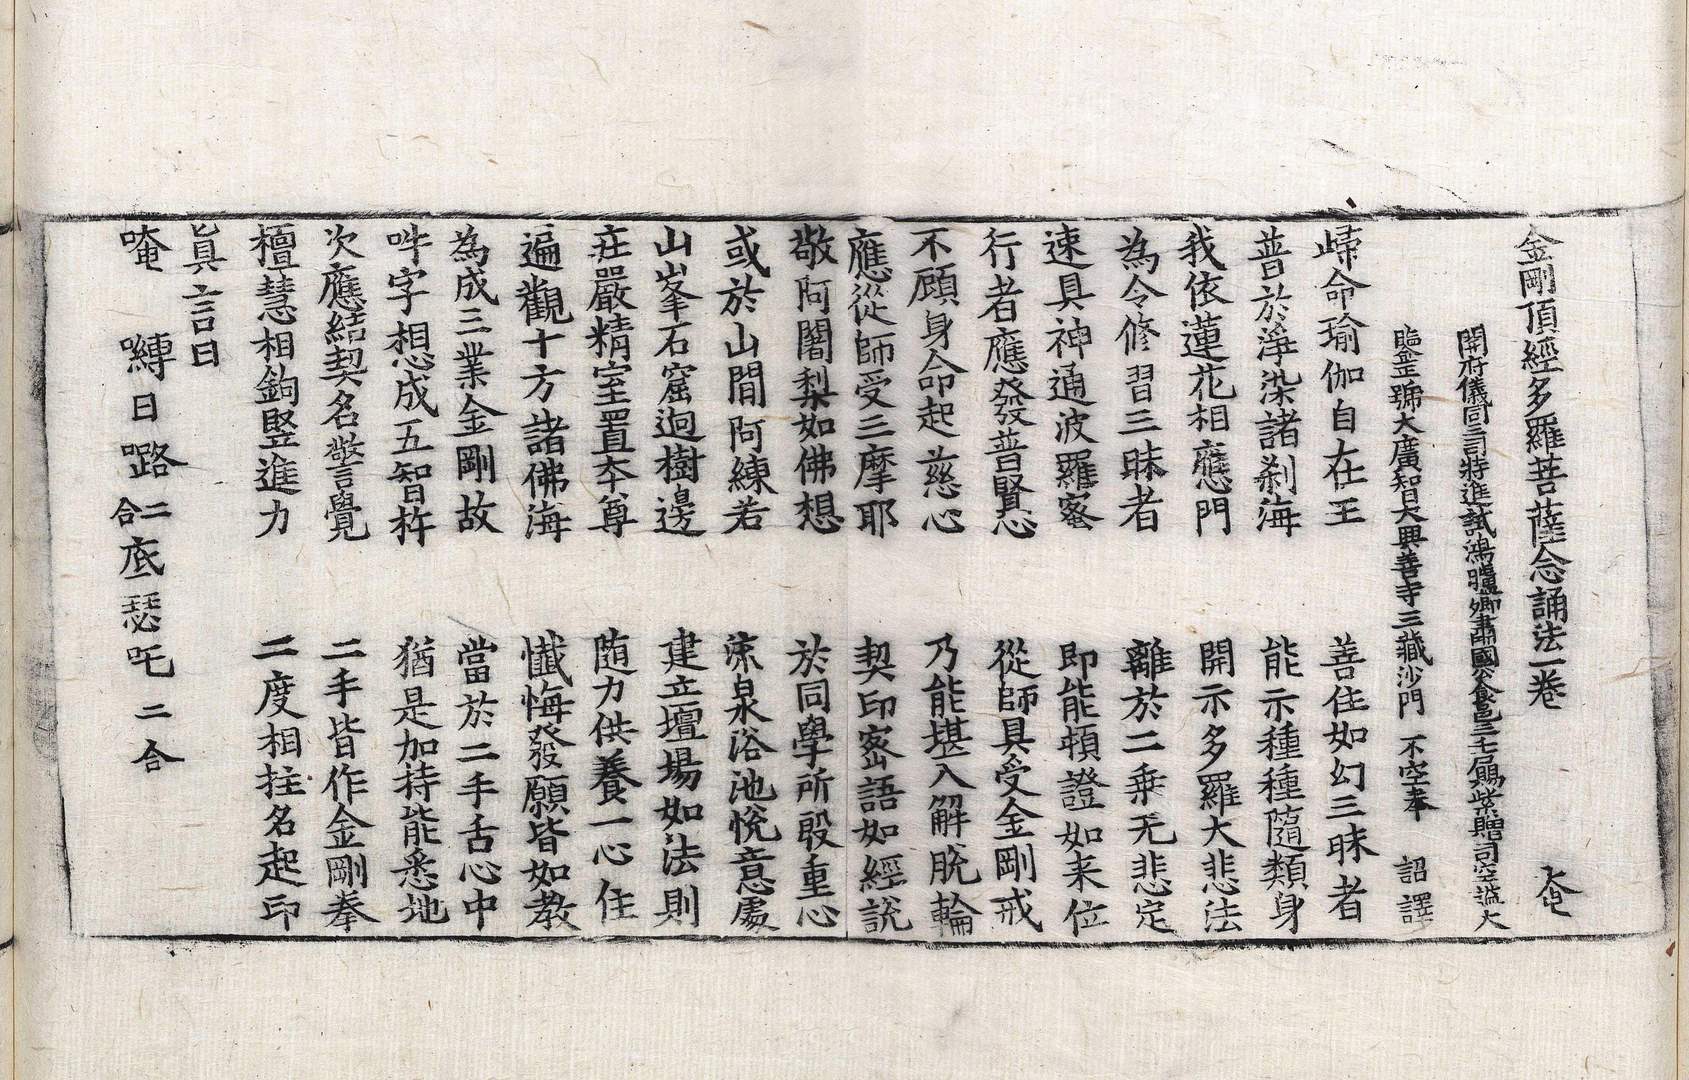 金剛頂經多羅菩薩念誦法一卷
開府儀同三司特進試鴻臚卿肅國公食邑三千户賜紫贈司空謚大
鑒正號大廣智大興善寺三藏沙門 不空奉 詔譯
歸命瑜伽自在王 善住如幻三昧者
普於淨染諸刹海 能示種種隨類身
我依蓮花相應門 開示多羅大悲法
為令修習三昧者 離於二乘无悲定
速具神通波羅蜜 即能頓證如来位
行者應發普賢心 從師具受金剛戒
不顧身命起慈心 乃能堪入解脫輪
應從師受三摩耶 契印密語如經說
敬阿闍梨如佛想 於同學所殷重心
或於山間阿練若 流泉浴池悅意處
山峯石窟迥樹邊 建立壇場如法則
莊嚴精室置本尊 随力供養一心住
遍觀十方諸佛海 懺悔發願皆如教
為成三業金剛故 當於二手舌心中
吽字想成五智杵 猶是加持能悉地
次應結契名警覺 二手皆作金剛拳
檀慧相鉤竪進力 二度相拄名起印
眞言曰
唵 嚩日囉二合底瑟吒二合